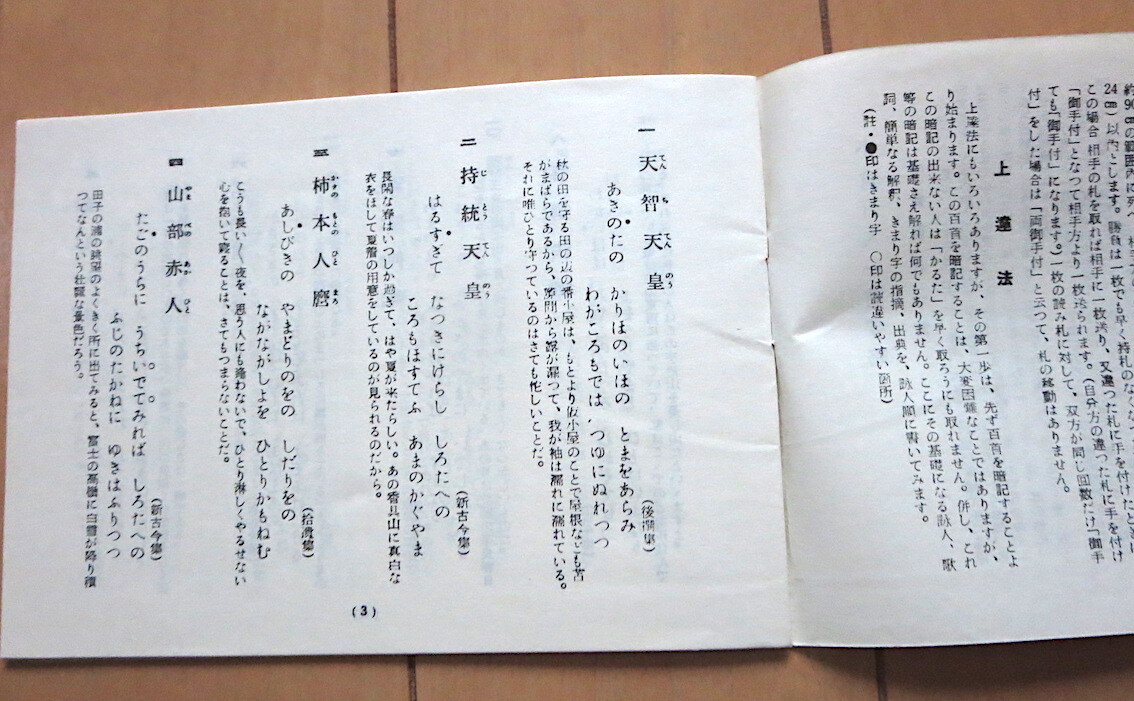 24cm)以内とします。勝負は一枚でも早く持札のなくなつ
この場合 相手の札を取れば相手に一枚送り、又違った札に手を付けたときに
「御手付」となつて相手方より一枚送られます。(自分方の違った札に手を付け
ても「御手付」になります。)一枚の読み札に対して、双方が同じ回数だけ「御手
付」をした場合は「両御手付」と云つて、札の移動はありません。
上達法
上達法にもいろいろありますが、その第一歩は、先ず百首を暗記することよ
り始まります。この百首を暗記することは、大変困難なことではありますが、
この暗記の出来ない人は「かるた」を早く取ろうにも取れません。併し、これ
等の暗記は基礎さえ解れば何でもありません。ここにその基礎になる詠人、歌
詞、簡単なる解釈、きまり字の指摘、出典を、詠人順に書いてみます。
(註・●印はきまり字 ○印は読違いやすい箇所)
一 天智天皇
てん ち てん のう
(後撰集)
あきのたの かりほのいほの とまをあらみ
わがころもでは つゆにぬれつつ
秋の田を守る田の辺の番小屋は、もとより仮小屋のことで屋根なども苫
がまばらであるから、隙間から露が漏つて、我が袖は濡れに濡れている。
それに唯ひとり守つているのはさても佗しいことだ。
二 持統天皇
じ とう てん のう
(新古今集)
はるすぎて なつきにけらし しろたへの
ころもほすてふ あまのかぐやま
長閑な春はいつしか過ぎて、はや夏が来たらしい。あの香具山に真白な
衣をほして夏着の用意をしているのが見られるのだから。
三 柿本人麿
かきの もとの ひと まろ
(拾遺集)
あしびきの やまどりのをの しだりをの
ながながしよを ひとりかもねむ
こうも長い〳〵夜を、思う人にも逢わないで、ひとり淋しくやるせない
心を抱いて寝ることは、さてもつまらないことだ。
四 山部赤人
やま べの あか ひと
(新古今集)
たごのうらに うちいでてみれば しろたへの
ふじのたかねに ゆきはふりつつ
田子の浦の眺望のよくきく所に出てみると、富士の高嶺に白雪が降り積
つてなんという壮麗な景色だろう。
(3)